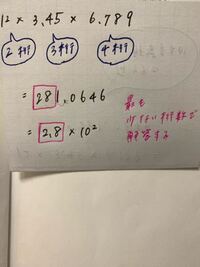 12 × 3.45 × 6.789
2桁 3桁 4桁
= 281.0646
= 2.8 × 10²
最も
少ない桁数で
解答する